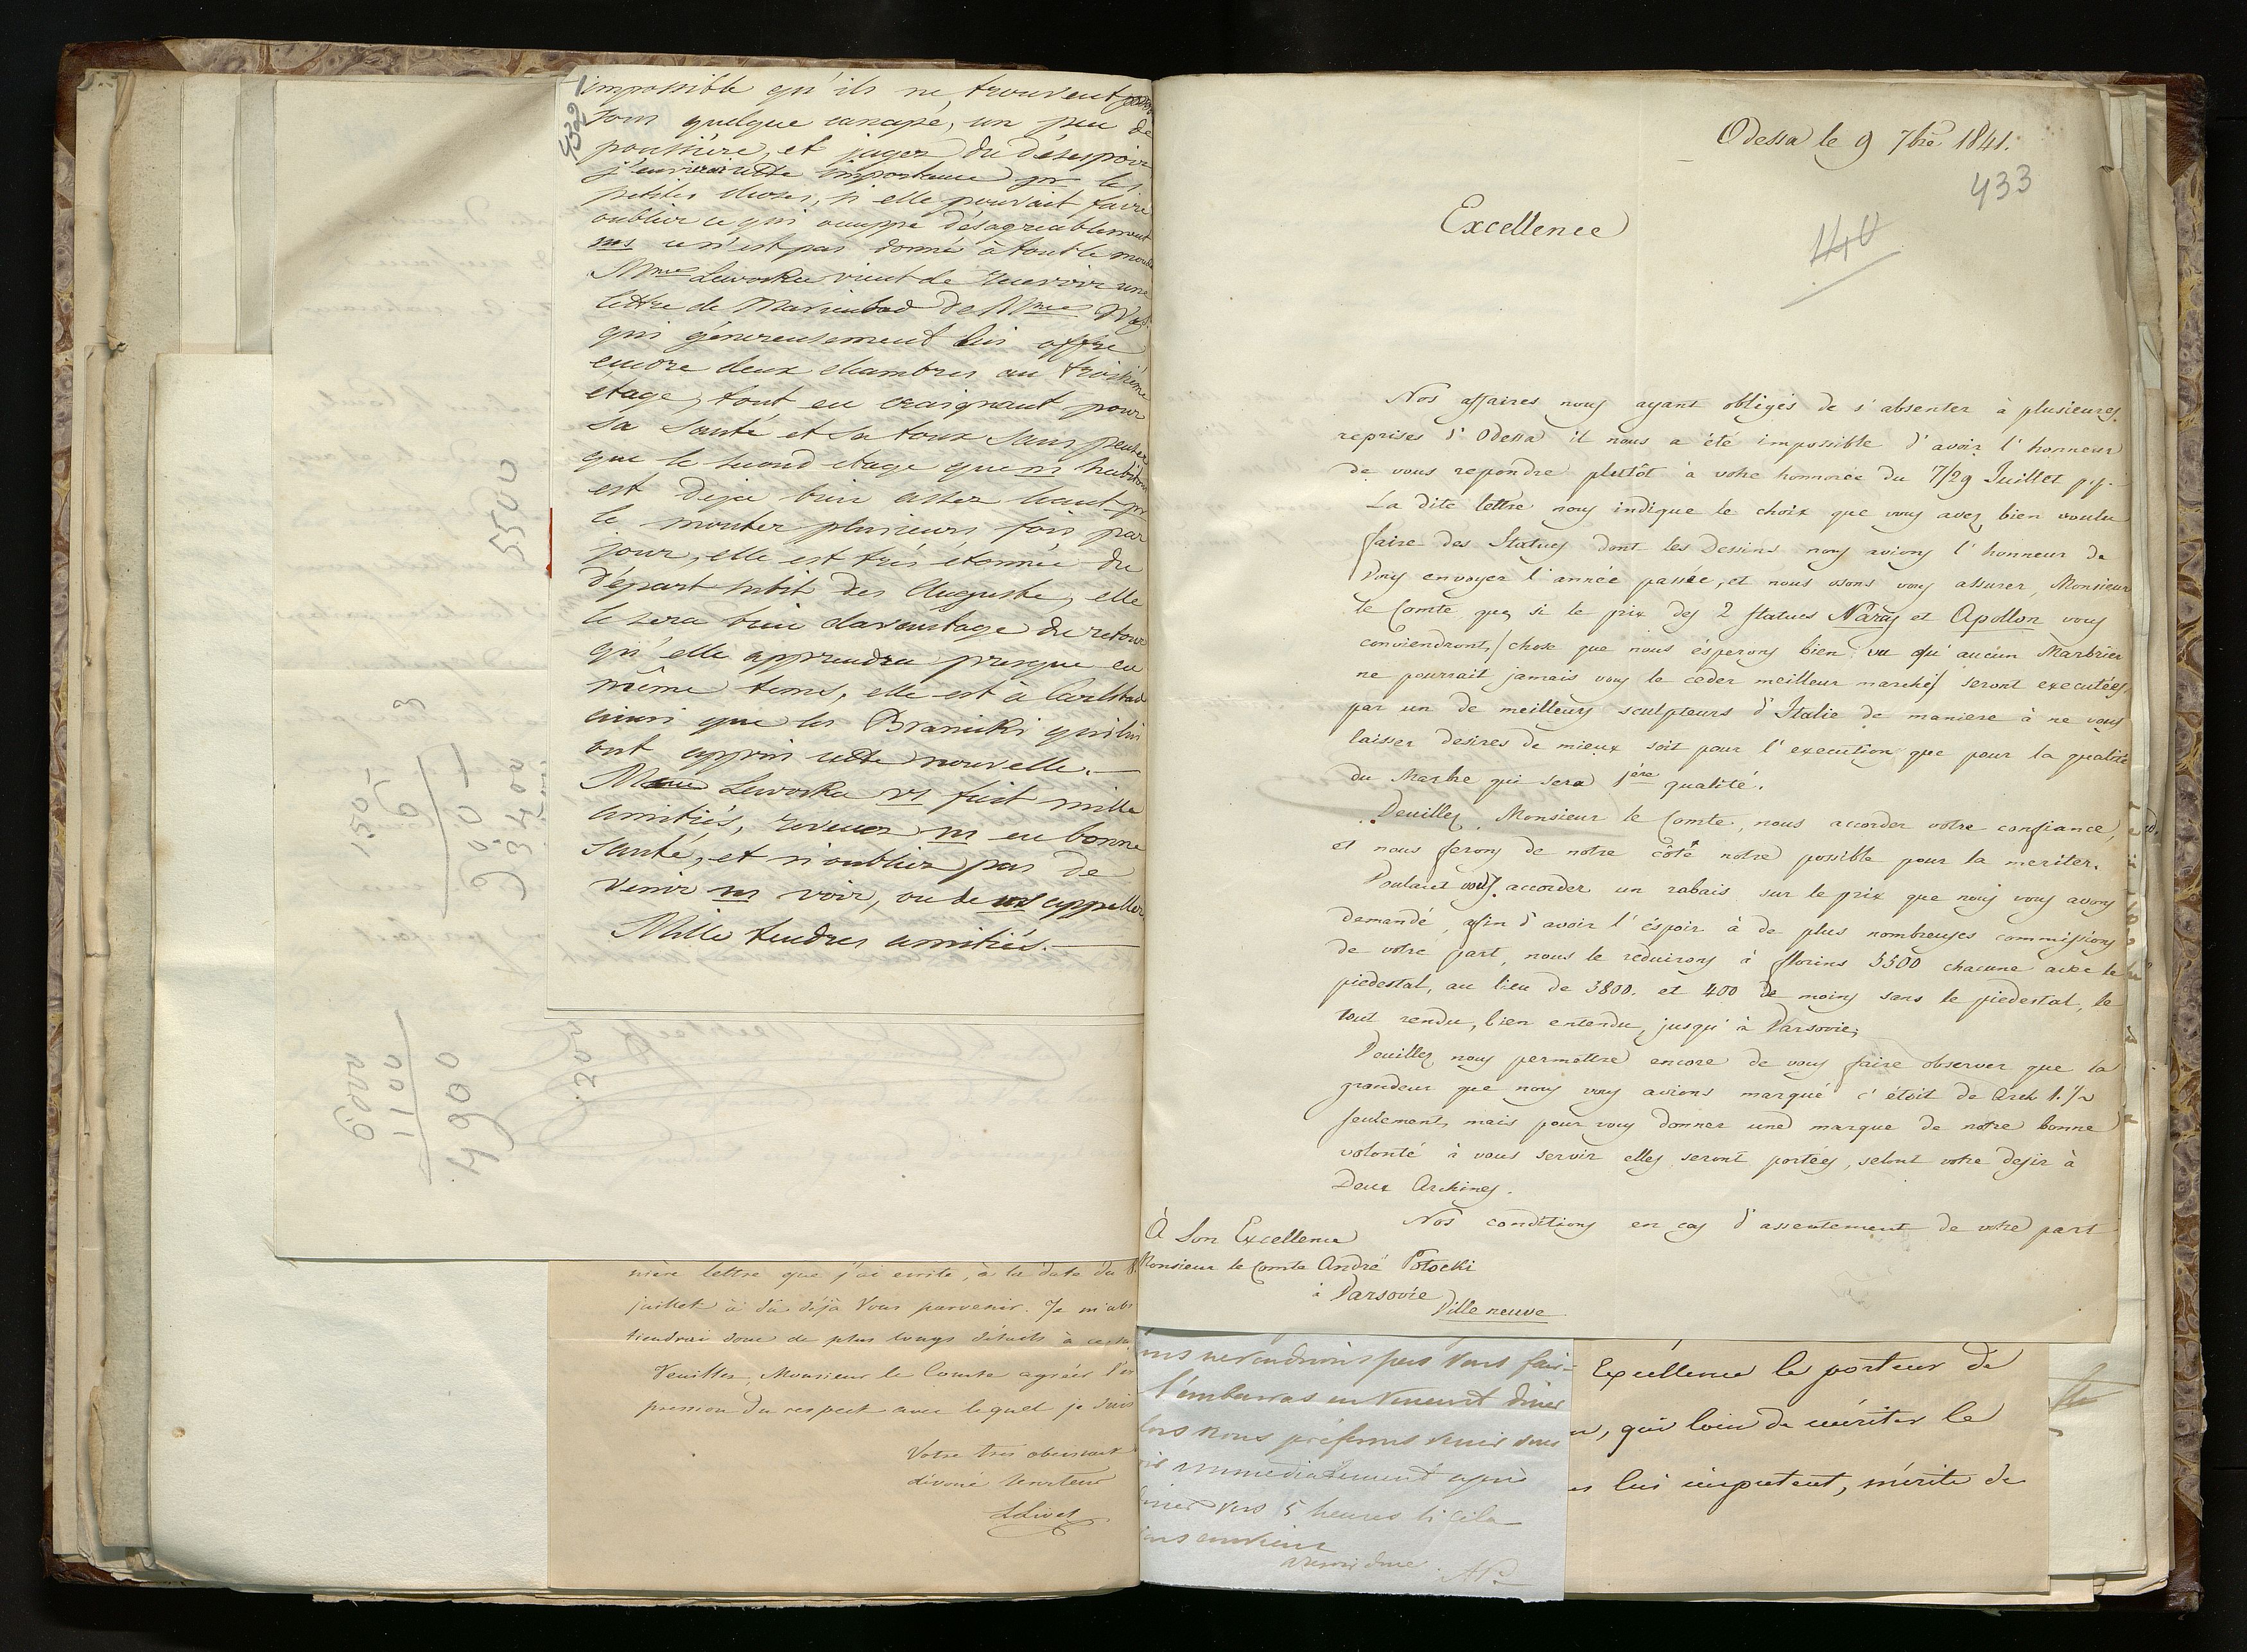 432
impossible qu'ils ne trouvent pas
sous quelque canapé, un peu de
poussière, et jugez du désespoir
j'envierai cette importance pr les
petites choses, si elle pouvait faire
oublier ce qui occupe désagréablement
ms ce n'est pas donné à tout le monde
Mme Lewocka vient de recevoir une
lettre de Marienbad de Mme
qui généreusement lui offre
encore deux chambres au troisième
étage, tout en craignant pour
sa santé et sa toux sans penser
que le second etage que ns habitons
est déja bien assez haut pr
le monter plusieurs fois par
jour, elle est très étonnée du
départ subit des Auguste, elle
le sera bien davantage du retour
qu'elle apprendra presque en
même tems, elle est à Carlsbad
ainsi que les Branicki qui lui
ont appris cette nouvelle.—
Mme Lewocka vs fait mille
amitiés, revenez ns en bonne
santé, et n'oubliez pas de
venir ns voir, ou de ns appeller
Mille tendres amitiés.—
5500
3
150
6
900
9400
6000
1100
4900
203
nière lettre que j'ai écrite, à la date du 8.
juillet a dû déjà Vous parvenir. Je m'abs
tiendrai donc de plus longs détails à ce
Veuillez, Monsieur le Comte agréer l'ex
pression du respect avec lequel je suis
Votre très obéissant
dévoué serviteur
Odessa le 9 7bre 1841.
433
140
Excellence
Nos affaires nous ayant obligés de s'absenter à plusieurs
reprises d'Odessa il nous a été impossible d'avoir l'honneur
de vous repondre plutôt à votre honnorée du 7/29 Juillet p.p.
La dite lettre nous indique le choix que vous avez bien voulu
faire des Statues dont les Dessins nous avions l'honneur de
Vous envoyer l'année passée, et nous osons vous assurer, Monsieur
le Comte que, si le prix des 2 statues et Apollon vous
conviendront, (chose que nous ésperons bien vu qu'aucun Marbrier
ne pourrait jamais vous le ceder meilleur marché) seront executées
par un de meilleurs sculpteurs d'Italie de maniere à ne vous
laisser desires de mieux soit pour l'execution que pour la qualité
du Marbre qui sera 1ère qualité.
Veuillez, Monsieur le Comte, nous accorder votre confiance,
et nous ferons de notre côté notre possible pour la meriter.
Voulant vous accorder un rabais sur le prix que nous vous avons
demandé, afin d'avoir l'éspoir à de plus nombreuses commissions
de votre part, nous le reduirons à florins 3500 chacune avec le
piedestal, au lieu de 3800. et 400 de moins sans le piedestal, le
tout rendu, bien entendu, jusqu'à Varsovie;
Veuillez nous permettre encore de vous faire observer que la
grandeur que nous vous avions marqué c'étoit de Arch 1.½
seulement, mais pour vous donner une marque de notre bonne
volonté à vous servir elles seront portées, selont votre desir à
Deux Archines.
Nos conditions en cas d'assentement de votre part
À Son Excellence
Monsieur le Comte André Potocki
à Varsovie
Ville neuve
l'embarras en venant diner
nous préferons venir vous
immédiatement après
vers 5 heures si cela
Excellence le porteur de
qui loin de mériter le
lui imputent, mérite de